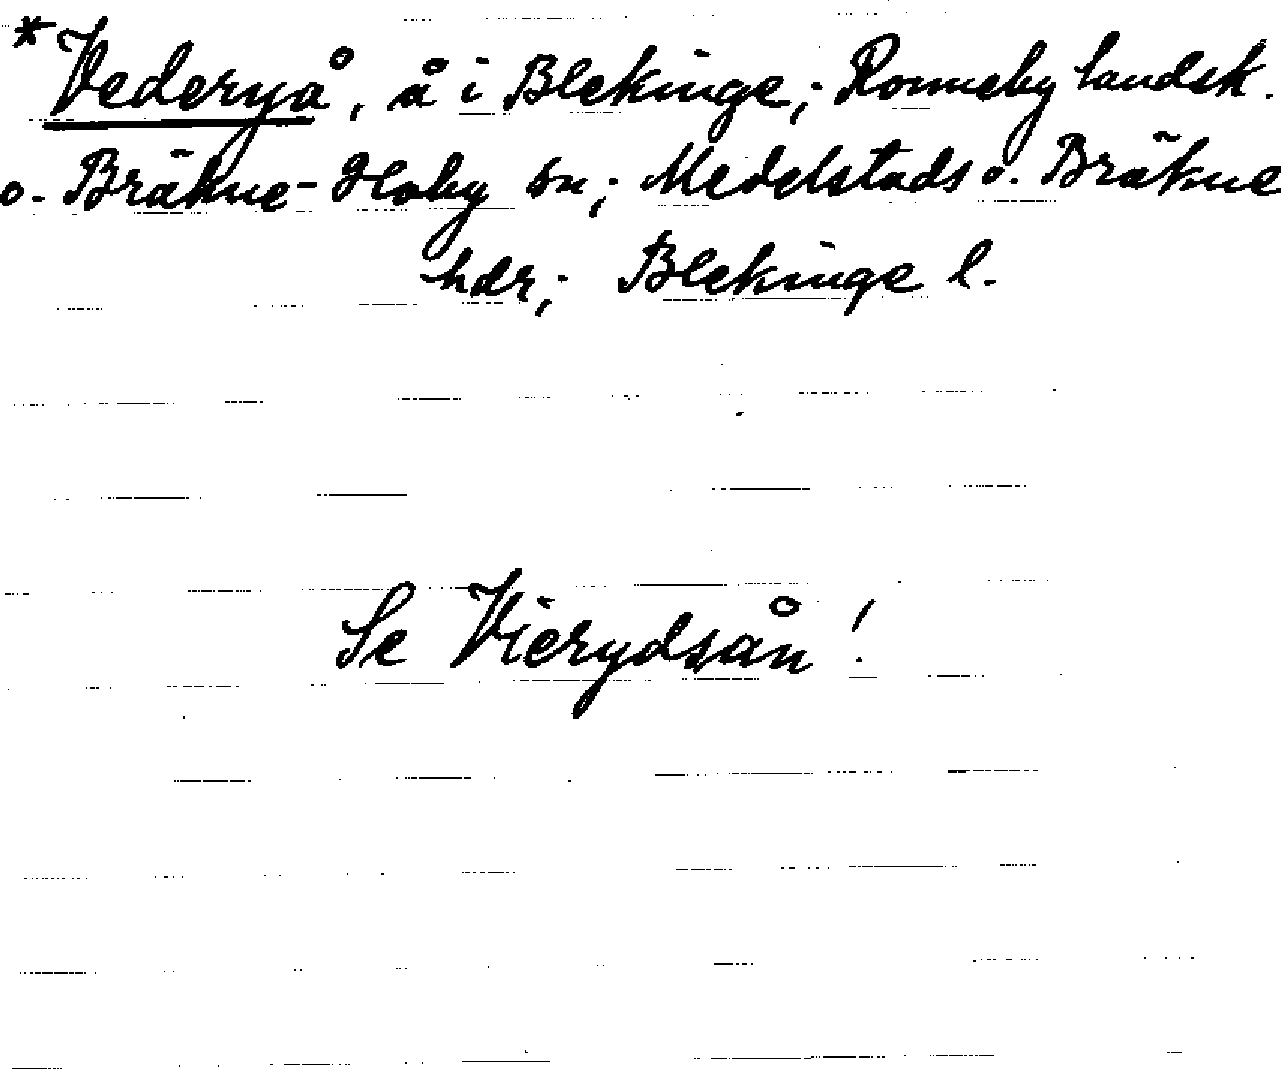 *Vederyå, å i Blekinge; Ronneby landsk.
o. Bräkne-Hoby sn; Medelstads o. Bräkne
hdr; Blekinge l.
Se Vierydsån!